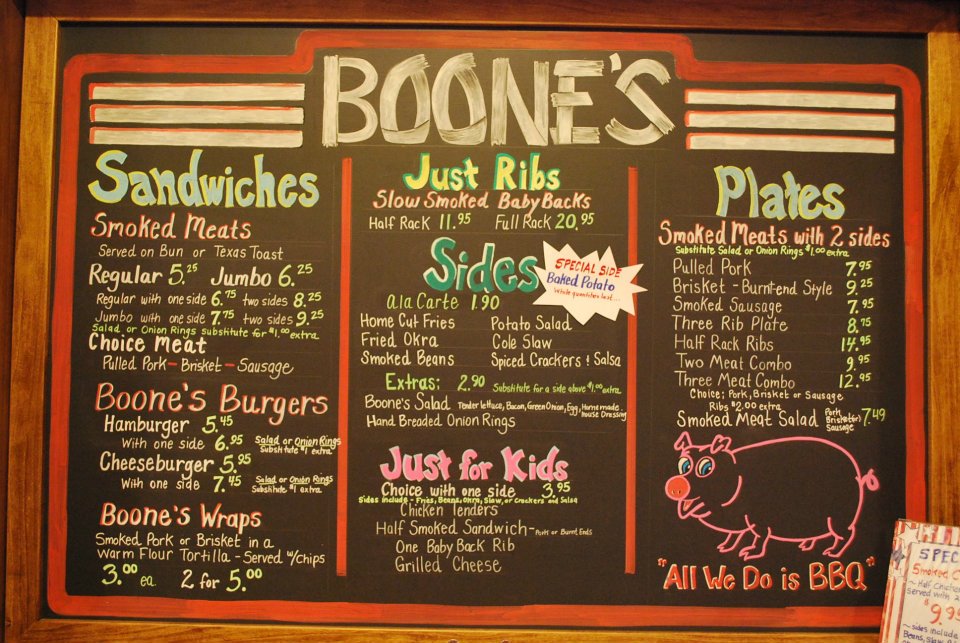 BOONE'S
Sandwiches
Smoked Meats
Served on Bun or Texas Toast
Regular 5.25 Jumbo 6.25
Regular with one side 6.75 two sides 8.25
Jumbo with one side 7.75 two sides 9.25
Salad or Onion Rings substitute for $1.00 extra
Choice Meat
Pulled Pork - Brisket - Sausage
Boone's Burgers
Hamburger 5.45
With one side 6.95 Salad or Onion Rings
Substitute $1 extra
Cheeseburger 5.95
With one side 7.45 Salad or Onion Rings
Substitute $1 extra
Boone's Wraps
Smoked Pork or Brisket in a
Warm Flour Tortilla - Served w/Chips
3.00 ea. 2 for 5.00
Just Ribs
Slow Smoked Baby Backs
Half Rack 11.95 Full Rack 20.95
Sides
SPECIAL SIDE
Baked Potato
While quantities last...
Ala Carte 1.90
Home Cut Fries Potato Salad
Fried Okra Cole Slaw
Smoked Beans Spiced Crackers & Salsa
Extras: 2.90 Substitute for a side above $1.00 extra
Boone's Salad Tender lettuce, Bacon, Green Onion, Egg, Homemade -
House Dressing
Hand Breaded Onion Rings
Just for Kids
Choice with one side 3.95
Sides include - Fries, Beans, Okra, Slaw, or Crackers and Salsa
Chicken Tenders
Half Smoked Sandwich - Pork or Burnt Ends
One Baby Back Rib
Grilled Cheese
Plates
Smoked Meats with 2 sides
Substitute Salad or Onion Rings $1.00 extra
Pulled Pork 7.95
Brisket - Burnt-end Style 9.25
Smoked Sausage 7.95
Three Rib Plate 8.75
Half Rack Ribs 14.95
Two Meat Combo 9.95
Three Meat Combo 12.95
Choice; Pork, Brisket or Sausage
Ribs $2.00 extra
Smoked Meat Salad Pork, Brisket or Sausage 7.49
"All We Do is BBQ"
SPEC
Smoked C
~ Half Chicken
served with 2
$9.9
~ sides include
Beans, Slaw